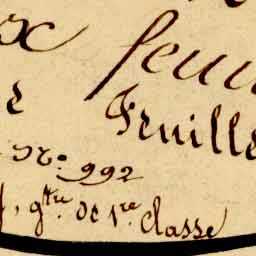 x feui
e Feuille
No. 992
f, gtru de 1re Classe